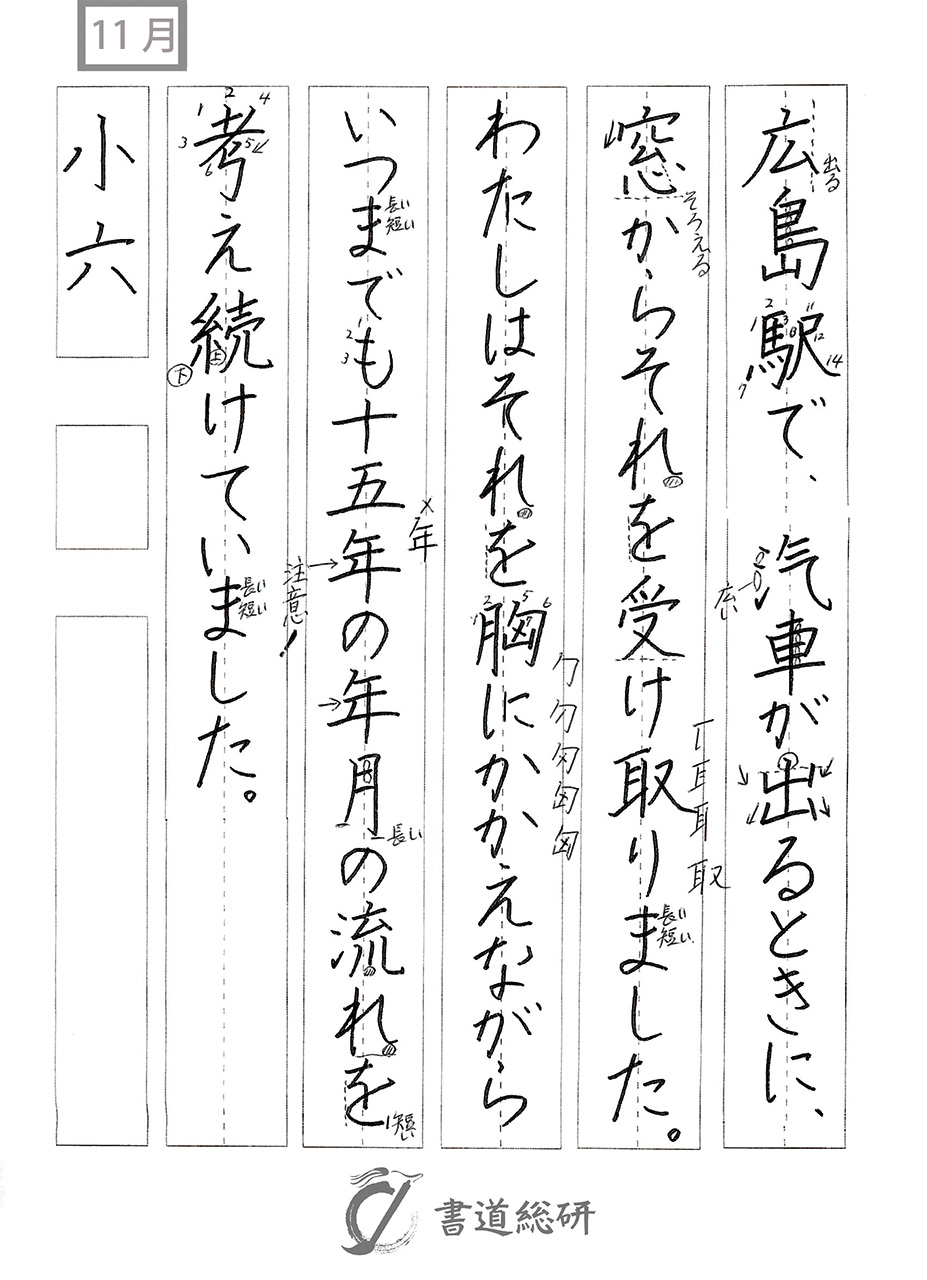 11月
広島駅で、汽車が出るときに、
出る
広い
窓からそれを受け取りました。
そろえる
取
長い
短い
わたしはそれを胸にかかえながら
いつまでも十五年の年月の流れを
長い
短い
×年
注意!
長い
短い
考え続けていました。
土
下
長い
短い
小六
書道総研